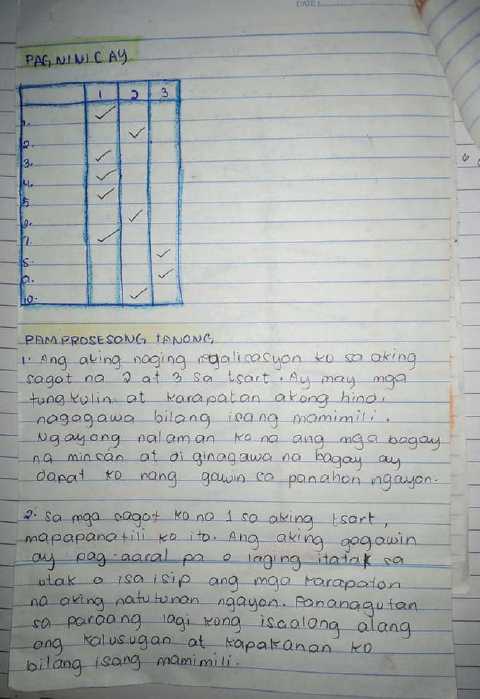 PAGNINICAY
1 2 3
1. ✓
2. ✓
3. ✓
4. ✓
5 ✓
6. ✓
7. ✓
8. ✓
9. ✓
10. ✓
PAMPROSESONG TANONG
1. Ang aking naging regalisasyon ko sa aking
sagot na 2 at 3 sa tsart. Ay may mga
tungkulin at karapatan akong hind,
nagagawa bilang isang mamimili.
Ngayong nalaman ko na ang mga bagay
na minsan at di ginagawa na bagay ay
dapat ko nang gawin sa panahon ngayon.
2. Sa mga sagot ko na 1 sa aking tsart,
mapapanatili ko ito. Ang aking gagawin
ay pag-aaral pa o laging itatak sa
utak o isa isip ang mga karapatan
na aking natutunan ngayon. Pananagutan
sa paraang lagi kong isaalang alang
ang kalusugan at kapakanan ko
bilang isang mamimili.